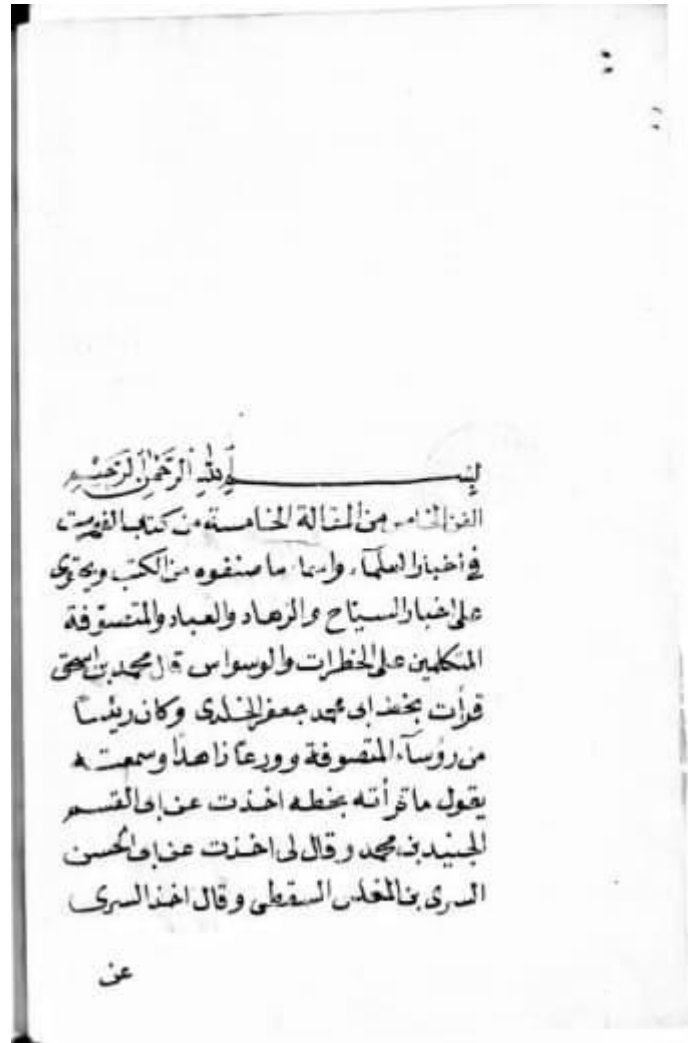 بسم الله الرحمن الرحيم
الفن الخامس من المقالة الخامسة من كتاب الفهرست
في أخبار العلماء واسما ما صنفوه من الكتب ويحتوى
على اخبار السياح والزهاد والعباد والمتصوفة
المتكلمين على الخطرات والوسواس قال محمد بن اسحق
قرأت بخط ابى محمد جعفر الخلدى وكان رئيسًا
من رؤسآء المتصوفة وورعًا زاهدًا وسمعته
يقول ما قرأته بخطه اخذت عن ابى القسم
الجنيد بن محمد وقال لى اخذت عن ابى الحسن
السرى بن المغلس السقطى وقال اخذ السرى
عن